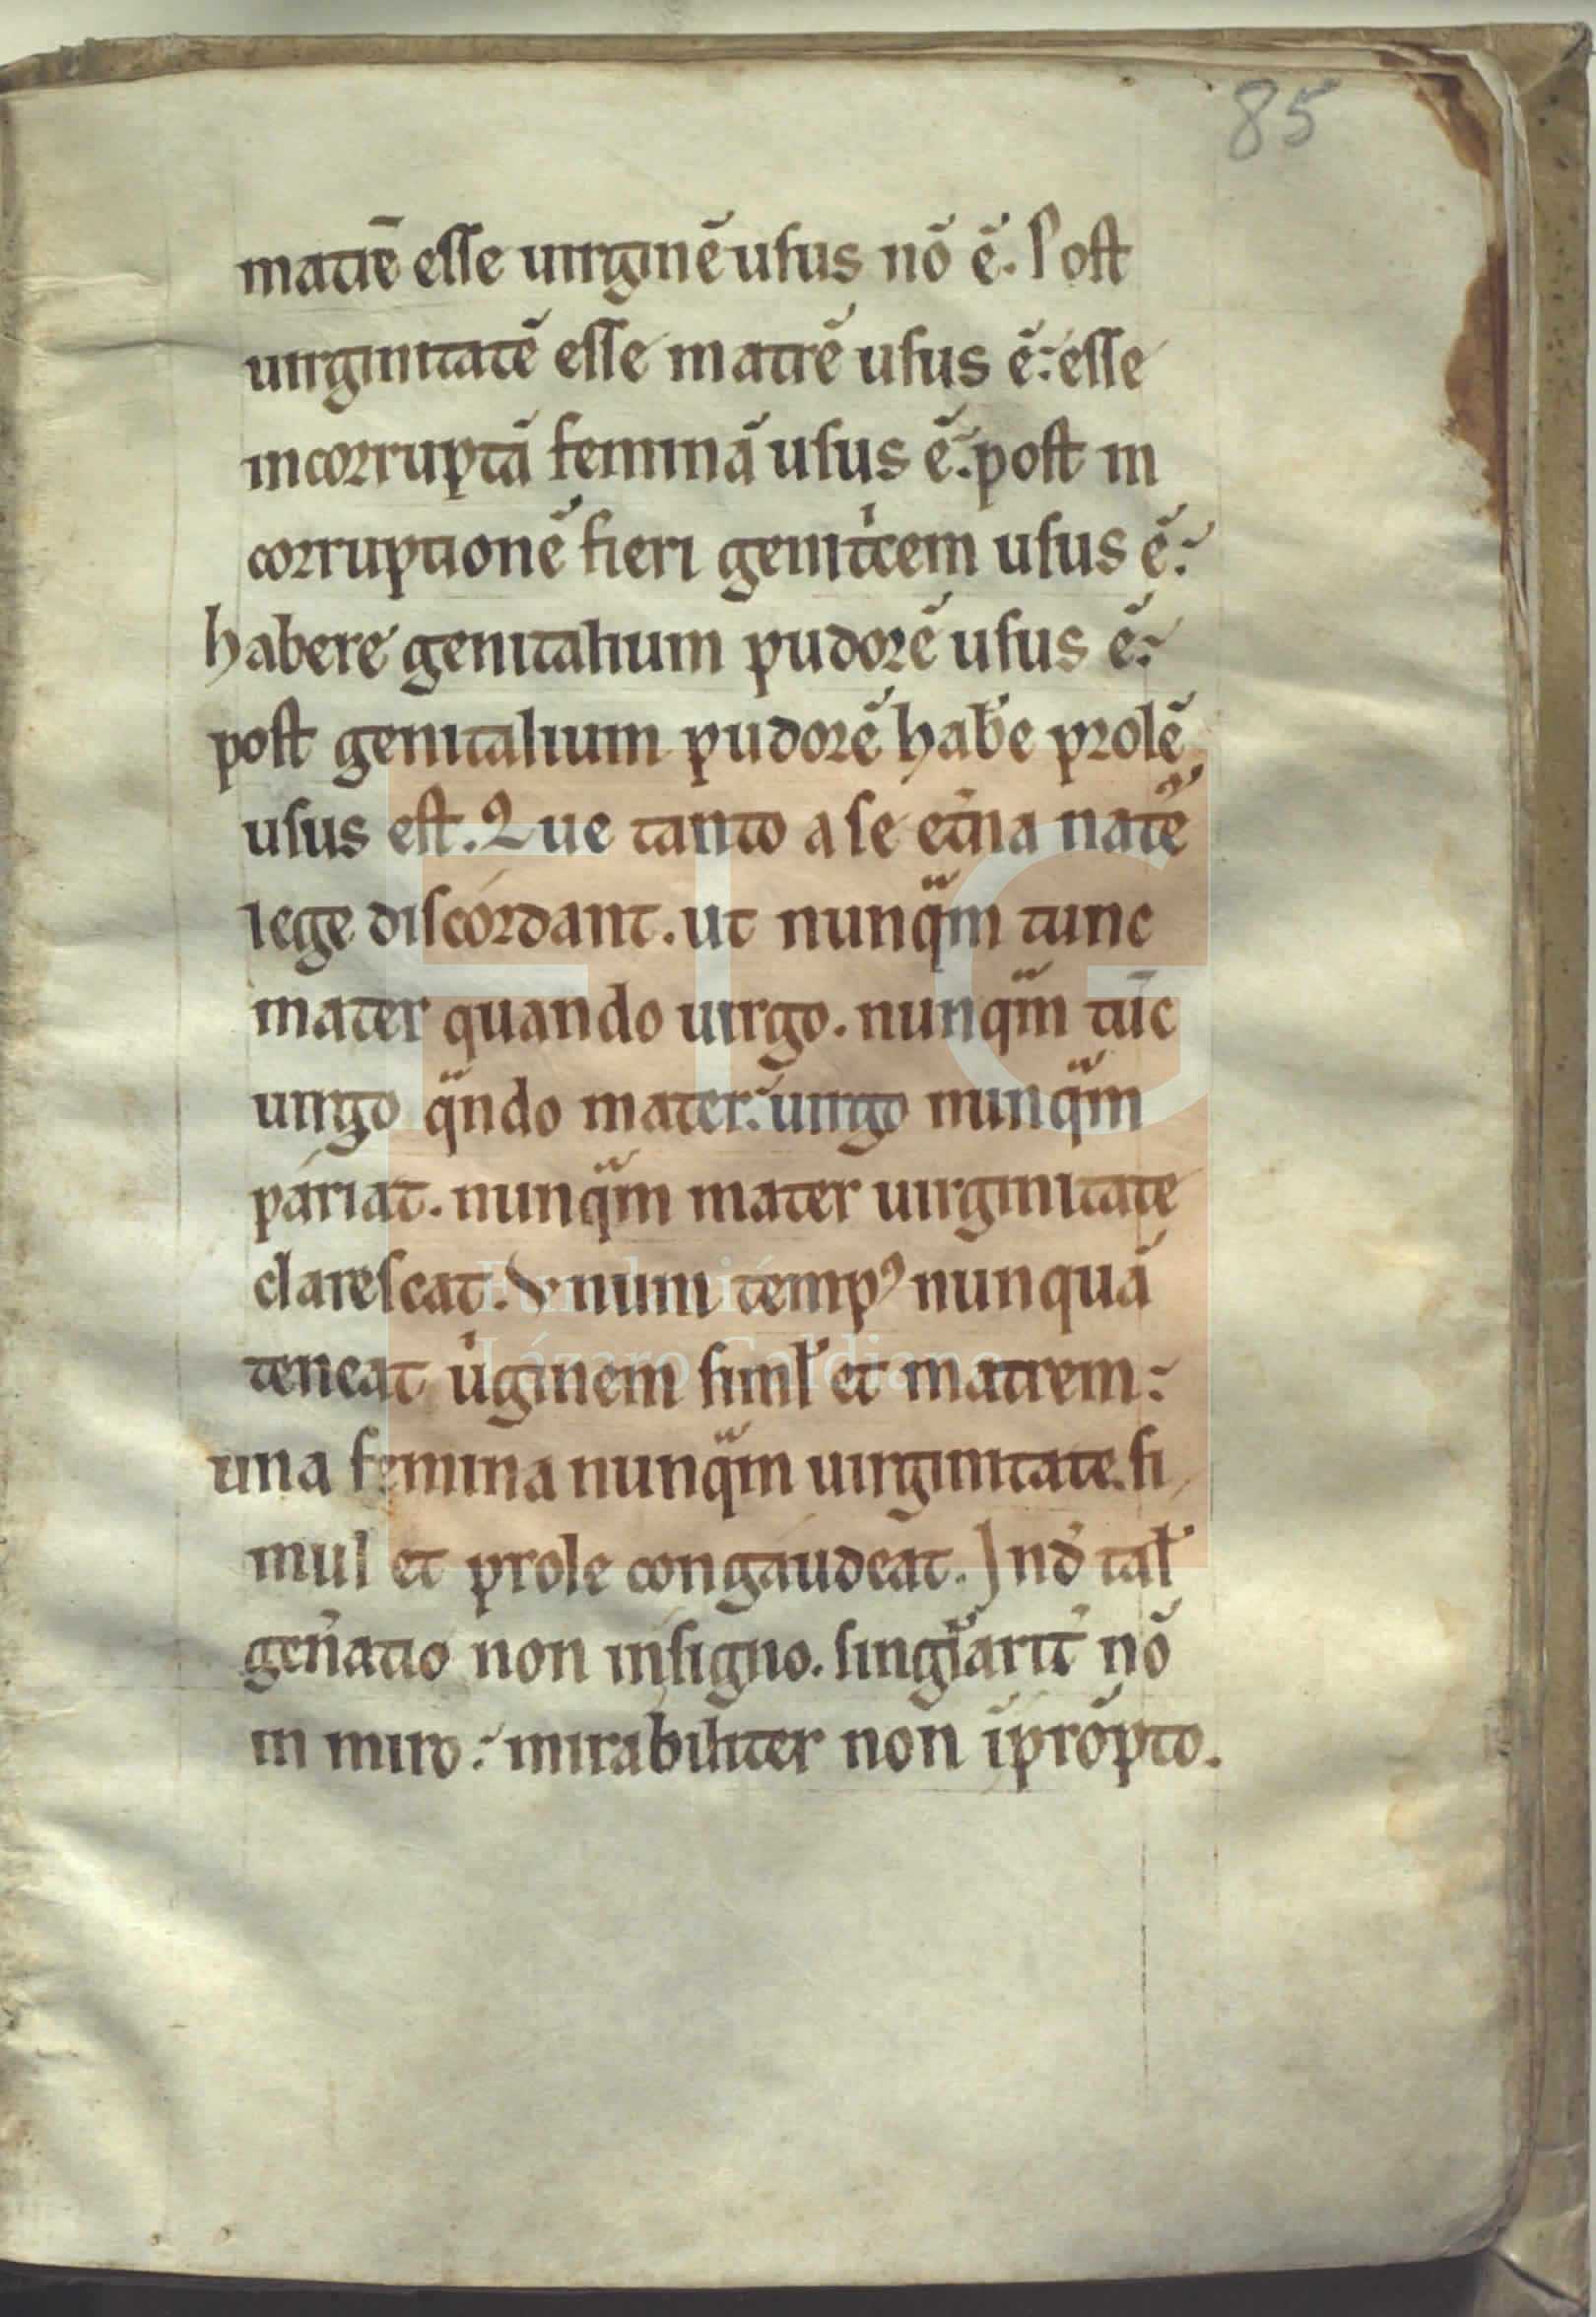 85
matrē esse uirginē usus nō ē. Post
uirginitatē esse matrē usus ē: esse
incorruptā feminā usus ē: post in
corruptionē fieri genitͥcem usus ē:
habere genitalium pudorē usus ē:
post genitalium pudorē hab̄e prolē
usus est. Que tanto a se et̄na natr̄e
lege discordant. ut nunqͣm tunc
mater quando uirgo. nunqͣm tūc
uirgo qͣndo mater: uirgo nunqͣm
pariat. nunqͣm mater uirginitate
clarescat. Vnum tempꝰ nunquā
teneat uͥginem siml̄ et matrem:
una femina nunqͣm uirginitate. si
mul et prole congaudeat. Ind̄ tal̄
gen̄atio non insigno. singl̄arit̄ nō
in miro: mirabiliter non īprōpto.
Fundación
Lázaro Galdiano